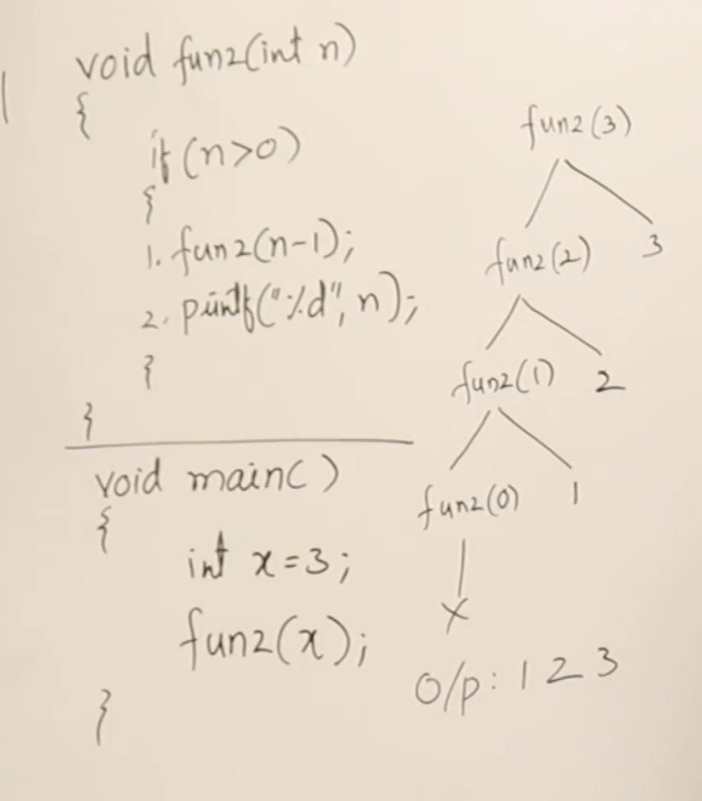 void fun2(int n)
{
if (n>0)
{
1. fun2(n-1);
2. printf("%d", n);
}
}
void main()
{
int x=3;
fun2(x);
}
fun2(3)
fun2(2) 3
fun2(1) 2
fun2(0) 1
x
O/p: 1 2 3